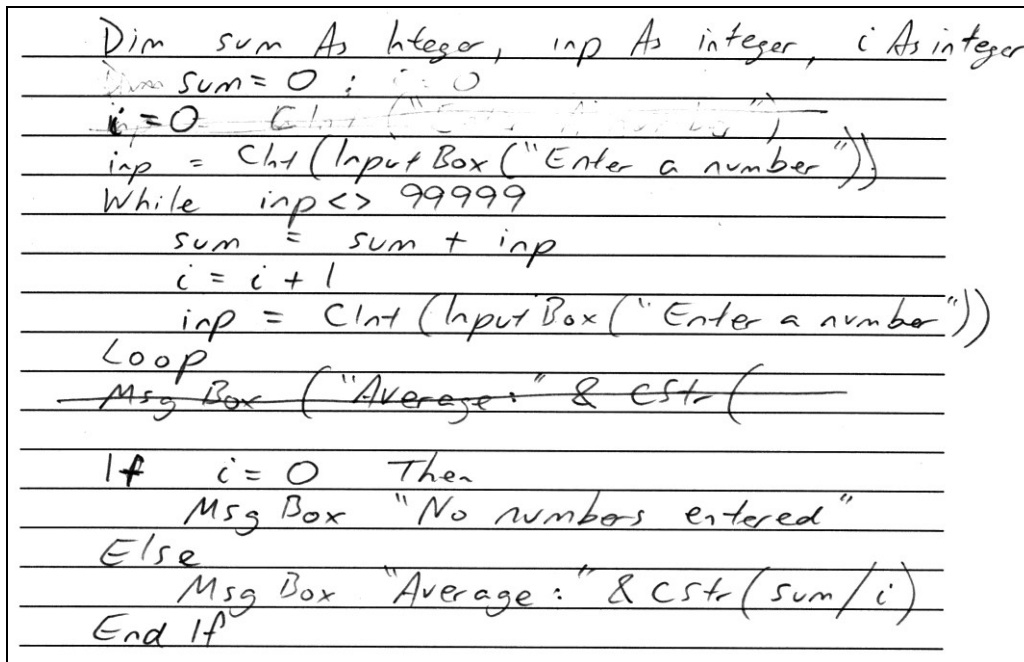 Dim sum As Integer, inp As integer, i As integer
Dim sum = 0 : i = 0
i = 0 CInt ("Enter A number")
inp = CInt (Input Box ("Enter a number"))
While inp <> 99999
sum = sum + inp
i = i + 1
inp = CInt (Input Box ("Enter a number"))
Loop
Msg Box ("Average:" & CStr (
If i = 0 Then
Msg Box "No numbers entered"
Else
Msg Box "Average:" & CStr (sum/i)
End If